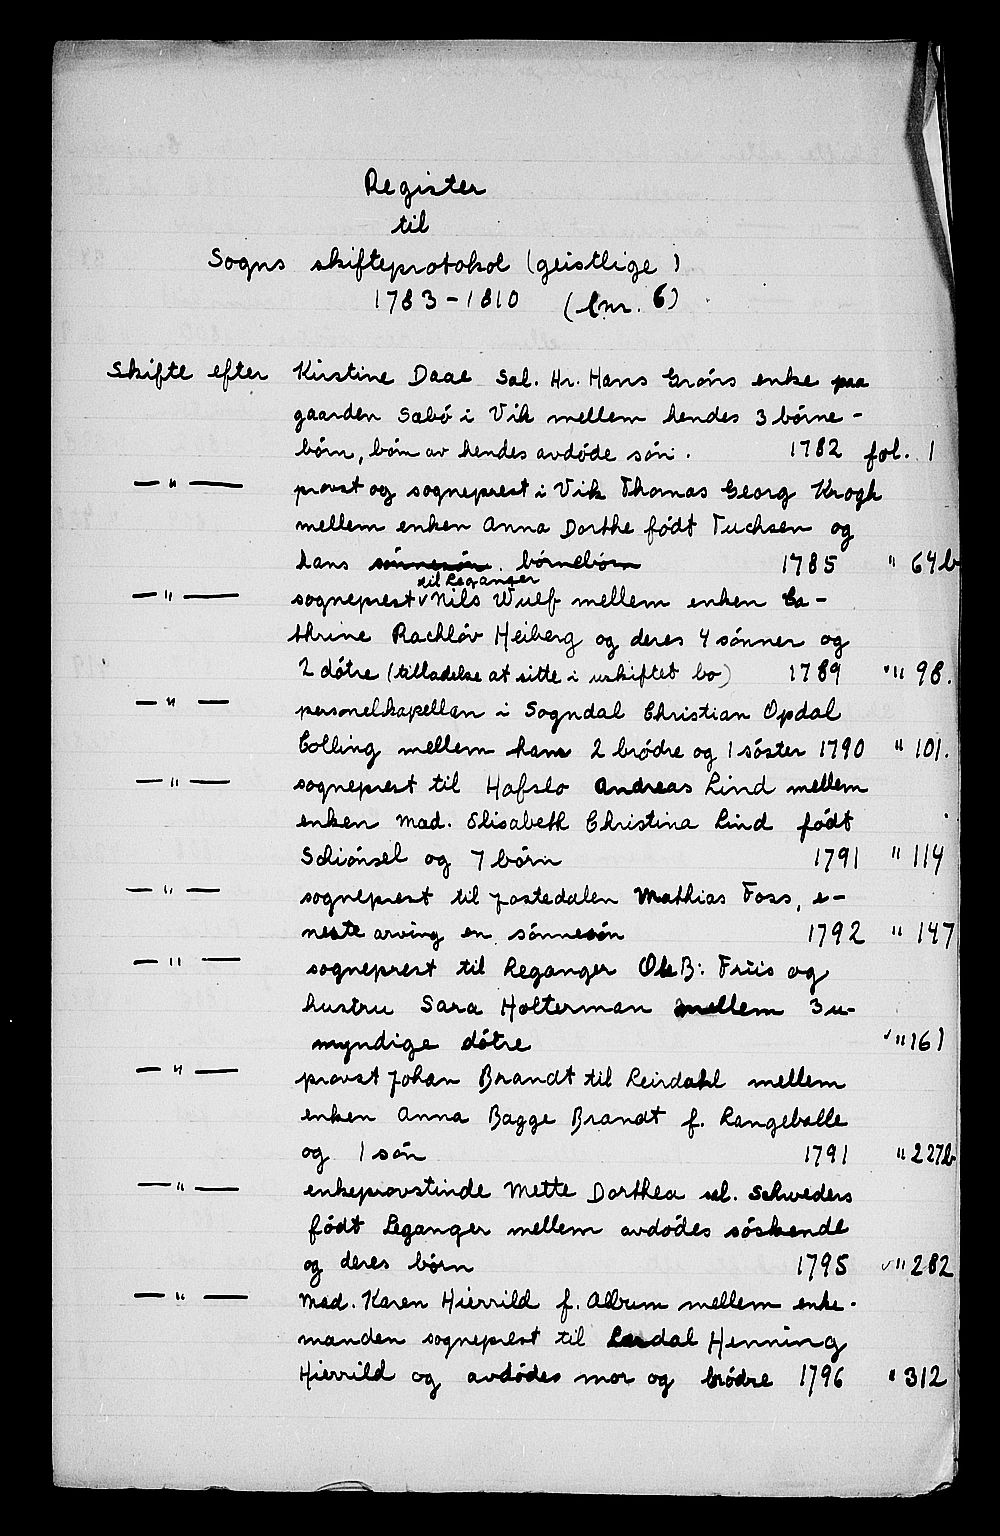 Register
til
Sogns skifteprotokol (geistlige)
1783-1810 (lnr. 6)
Skifte efter Kirstine Daae Sal. Hr. Hans Gröns enke paa
gaarden Sæbö i Vik mellem hendes 3 börne-
börn, börn av hendes avdöde sön. 1782 fol. 1
— " — provst og sogneprest i Vik Thomas Georg Krogh
mellem enken Anna Dorthe født Tuchsen og
hans sönnesön. börnebörn 1785 " 64b
til Leganger
— " — sogneprest Nils Wulf mellem enken Ca-
thrine Rachlöv Heiberg og deres 4 sönner og
2 dötre (tilladelse at sitte i uskiftet bo) 1789 " 98.
— " — personelkapellan i Sogndal Christian Opdal
Colling mellem hans 2 brödre og 1 söster 1790 " 101.
— " — sogneprest til Hafslo Andreas Lind mellem
enken Mad. Elisabeth Christina Lind født
Schiönsel og 7 börn 1791 " 114
— " — sogneprest til Jostedalen Mathias Foss, e-
neste arving en sönnesön 1792 " 147
— " — sogneprest til Leganger Ole B: Friis og
hustru Sara Holterman mellem 3 u-
myndige dötre " 161
— " — provst Johan Brandt til Leirdahl mellem
enken Anna Bagge Brandt f. Langeballe
og 1 sön 1791 " 227b
— " — enkeprovstinde Mette Dorthea sal. Schweders
født Leganger mellem avdödes söskende
og deres börn 1795 " 282
— " — Mad. Karen Hierrild f. Album mellem enke-
manden sogneprest til Lerdal Henning
Hierrild og avdödes mor og brödre 1796 " 312